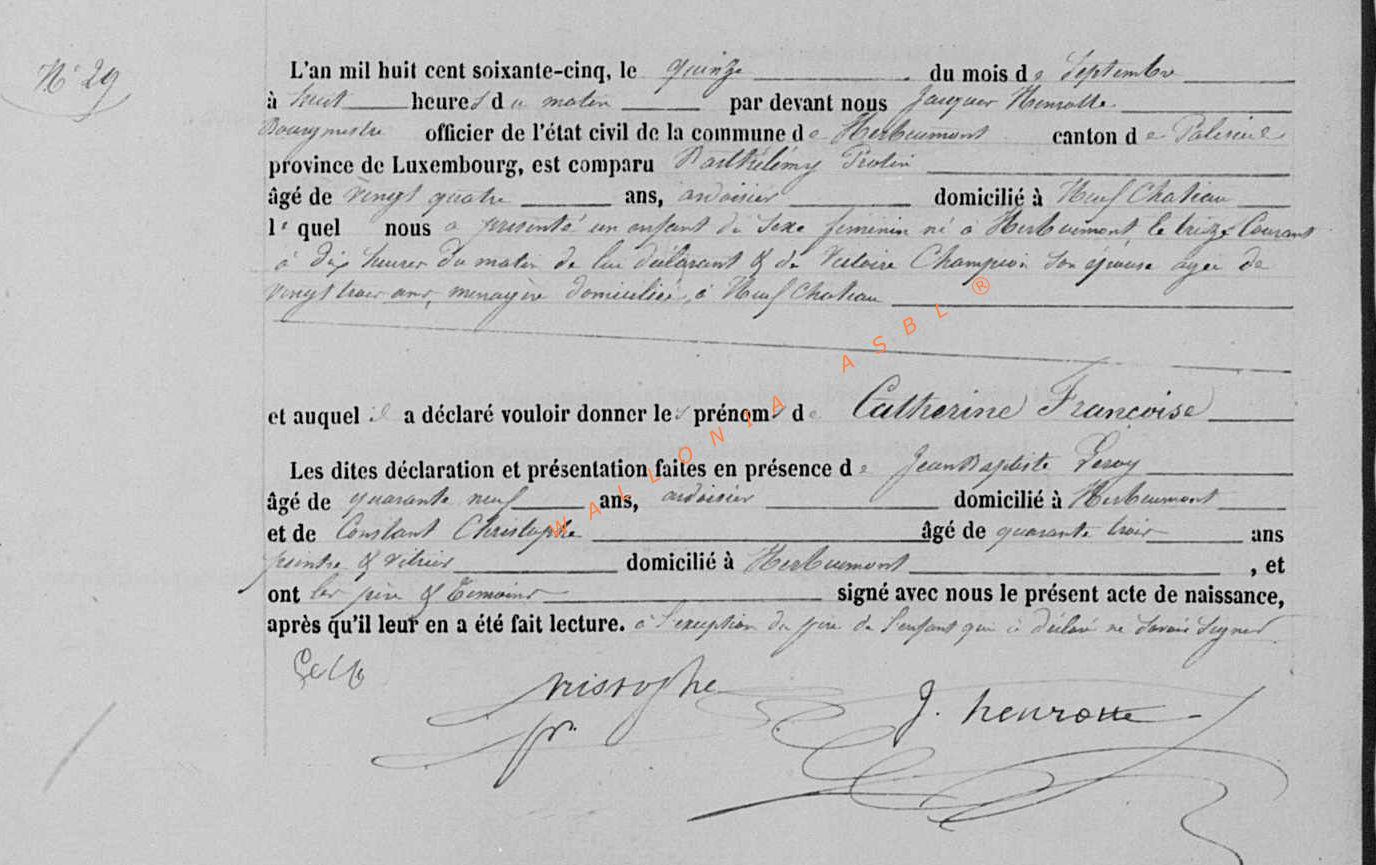 N° 29
L'an mil huit cent soixante-cinq, le quinze du mois de Septembre
à huit heures du matin par devant nous Jacques Henrotte
Bourgmestre officier de l'état civil de la commune de Herbeumont canton de Paliseul
province de Luxembourg, est comparu Barthélémy Protin
âgé de vingt quatre ans, ardoisier domicilié à Neuf Chateau
lequel nous a présenté un enfant du sexe féminin né à Herbeumont le treize Courant
à dix heures du matin de lui déclarant & de Victoire Champion son épouse agée de
vingt trois ans, menagère domiciliée à Neuf Chateau
et auquel il a déclaré vouloir donner les prénoms de Catherine Françoise
Les dites déclaration et présentation faites en présence de Jean Baptiste Leroy
âgé de quarante neuf ans, ardoisier domicilié à Herbeumont
et de Constant Christophe âgé de quarante trois ans
peintre & vitrier domicilié à Herbeumont, et
ont les père & temoins signé avec nous le présent acte de naissance,
après qu'il leur en a été fait lecture. à l'exception du père de l'enfant qui a déclaré ne savoir signer
J. henrotte
WALLONIA ASBL ®